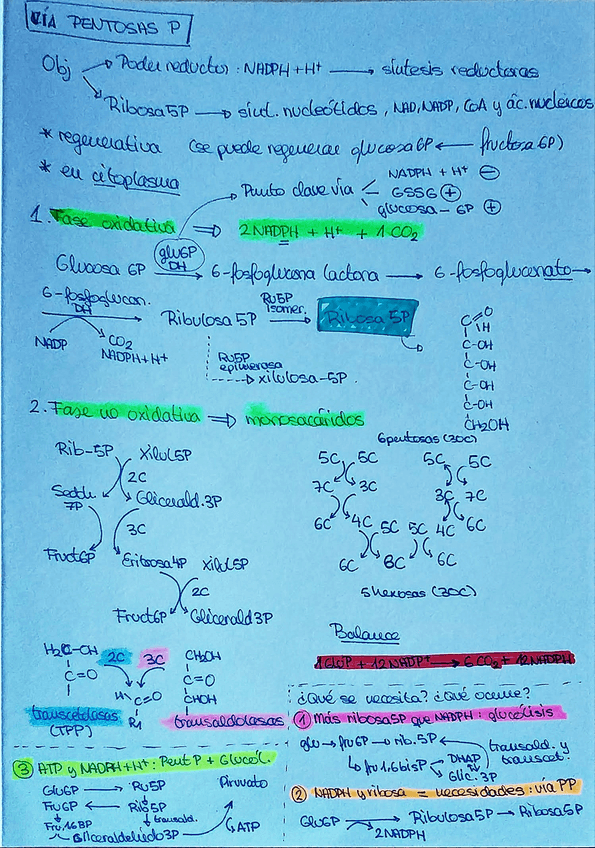 VÍA PENTOSAS P
Obj → Poder reductor: NADPH + H+ → síntesis reductoras
→ Ribosa 5P → sínt. nucleótidos, NAD, NADP, CoA y ác. nucleicos
* regenerativa (se puede regenerar glucosa 6P ← fructosa 6P)
* en citoplasma
Punto clave vía
NADPH + H+ ⊖
GSSG ⊕
glucosa - 6P ⊕
1. Fase oxidativa ⇒ 2 NADPH + H+ + 1 CO2
glu6P
DH
Glucosa 6P → 6-fosfoglucona lactona → 6-fosfogluconato →
6-fosfoglucon.
DH
NADP
CO2
NADPH + H+
Ribulosa 5P
Ru5P
Isomer.
Ribosa 5P
Ru5P
epimerasa
→ xilulosa-5P.
C=O
H
C-OH
C-OH
C-OH
C-OH
CH2OH
2. Fase no oxidativa ⇒ monosacáridos
Rib-5P Xilul5P
2C
Sedoh
7P
Glicerald.3P
3C
Fruct6P Eritrosa4P xilul5P
2C
Fruct6P Glicerald3P
6 pentosas (30C)
5C 5C 5C 5C
7C 3C 3C 7C
6C 4C 5C 5C 4C 6C
6C 3C 6C
5 hexosas (30C)
Balance
1 Glu6P + 12 NADP+ → 6 CO2 + 12 NADPH
H2C-OH
C=O
2C
3C
H C=O
R1
CH2OH
C=O
CHOH
transcetolasas
(TPP)
transaldolasas
¿Qué se necesita? ¿Qué ocurre?
① Más ribosa5P que NADPH: glucólisis
glu → fru6P → rib. 5P
transald. y
transcet.
↳ fru1,6bisP
DHAP
Glic. 3P
② NADPH y ribosa = necesidades: vía PP
Glu6P → Ribulosa5P → Ribosa5P
2NADPH
③ ATP y NADPH+H+: Pent P + Glucól.
Glu6P → Ru5P
Piruvato
Fru6P ← Rib5P
transald.
Fru,16BP
Gliceraldehído3P
↳ ATP